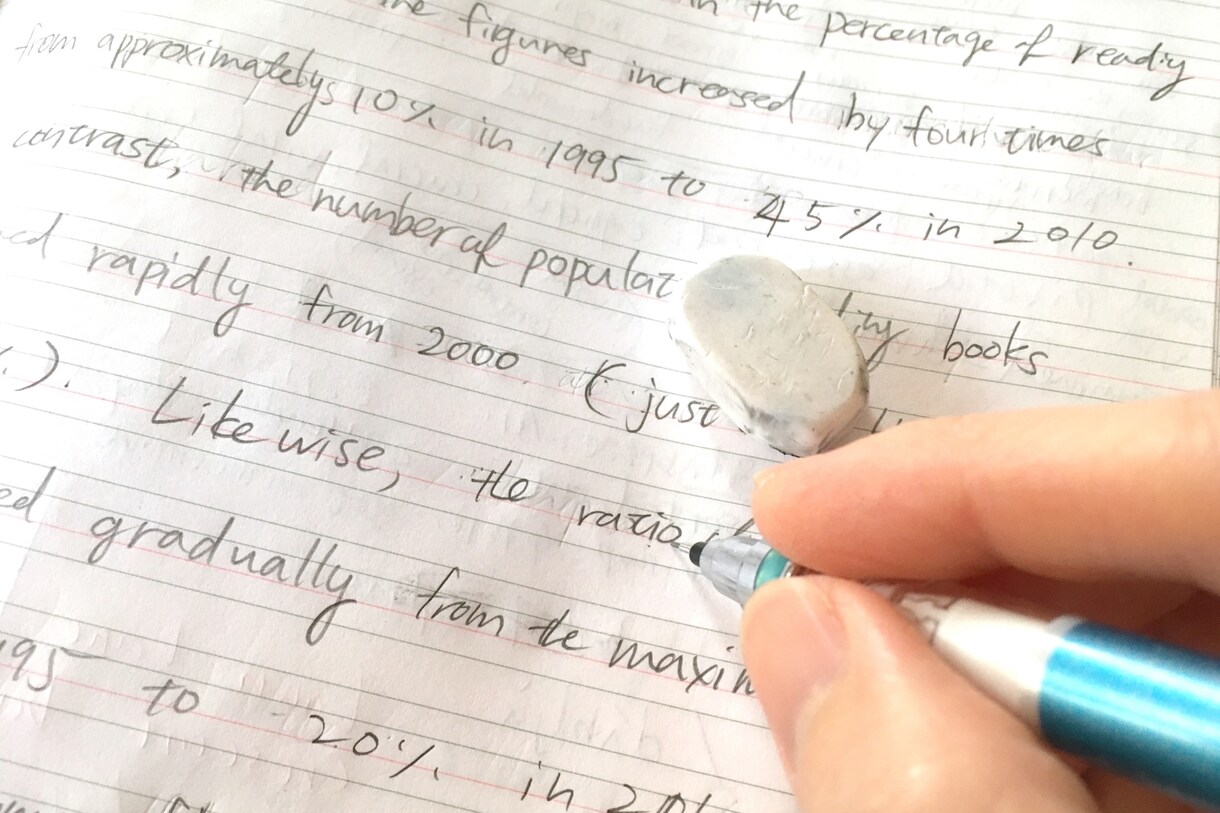 in the percentage of readiy
the figures increased by four times
from approximatelys 10% in 1995 to 45% in 2010.
contrast, the number of populat books
rapidly from 2000 (just
Likewise, the ratio
gradually from the maxim
to 20% in